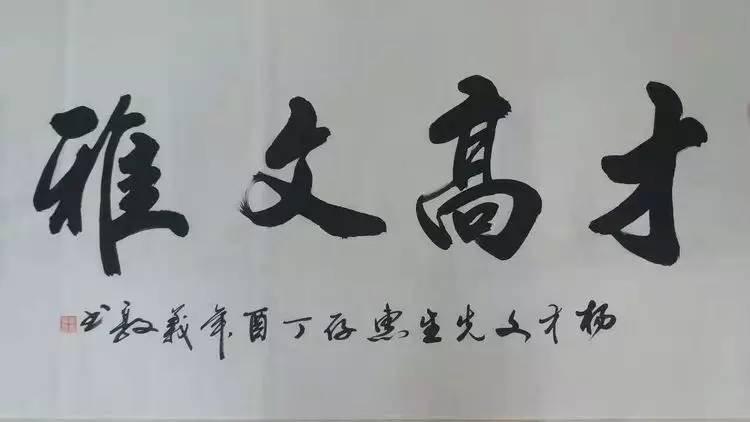 才高文雅
杨才文先生惠存丁酉年義敦书